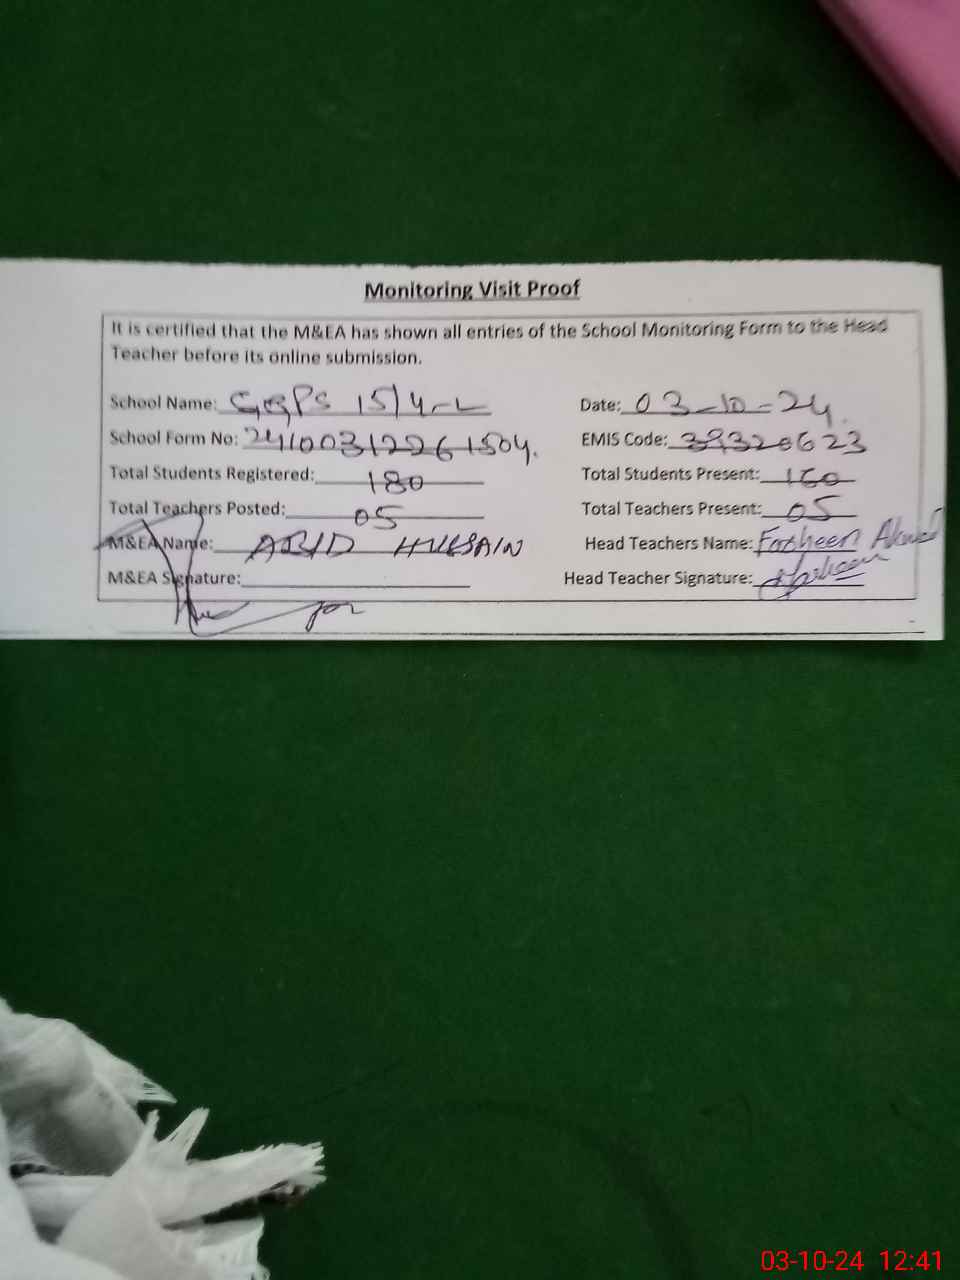 Monitoring Visit Proof
It is certified that the M&EA has shown all entries of the School Monitoring Form to the Head
Teacher before its online submission.
School Name: GGPS 15/4-L Date: 03-10-24
School Form No: 24100312261504. EMIS Code: 39320623
Total Students Registered: 180 Total Students Present: 160
Total Teachers Posted: 05 Total Teachers Present: 05
M&EA Name: ABID HUSSAIN Head Teachers Name: Farheen
M&EA Signature: Head Teacher Signature:
03-10-24 12:41